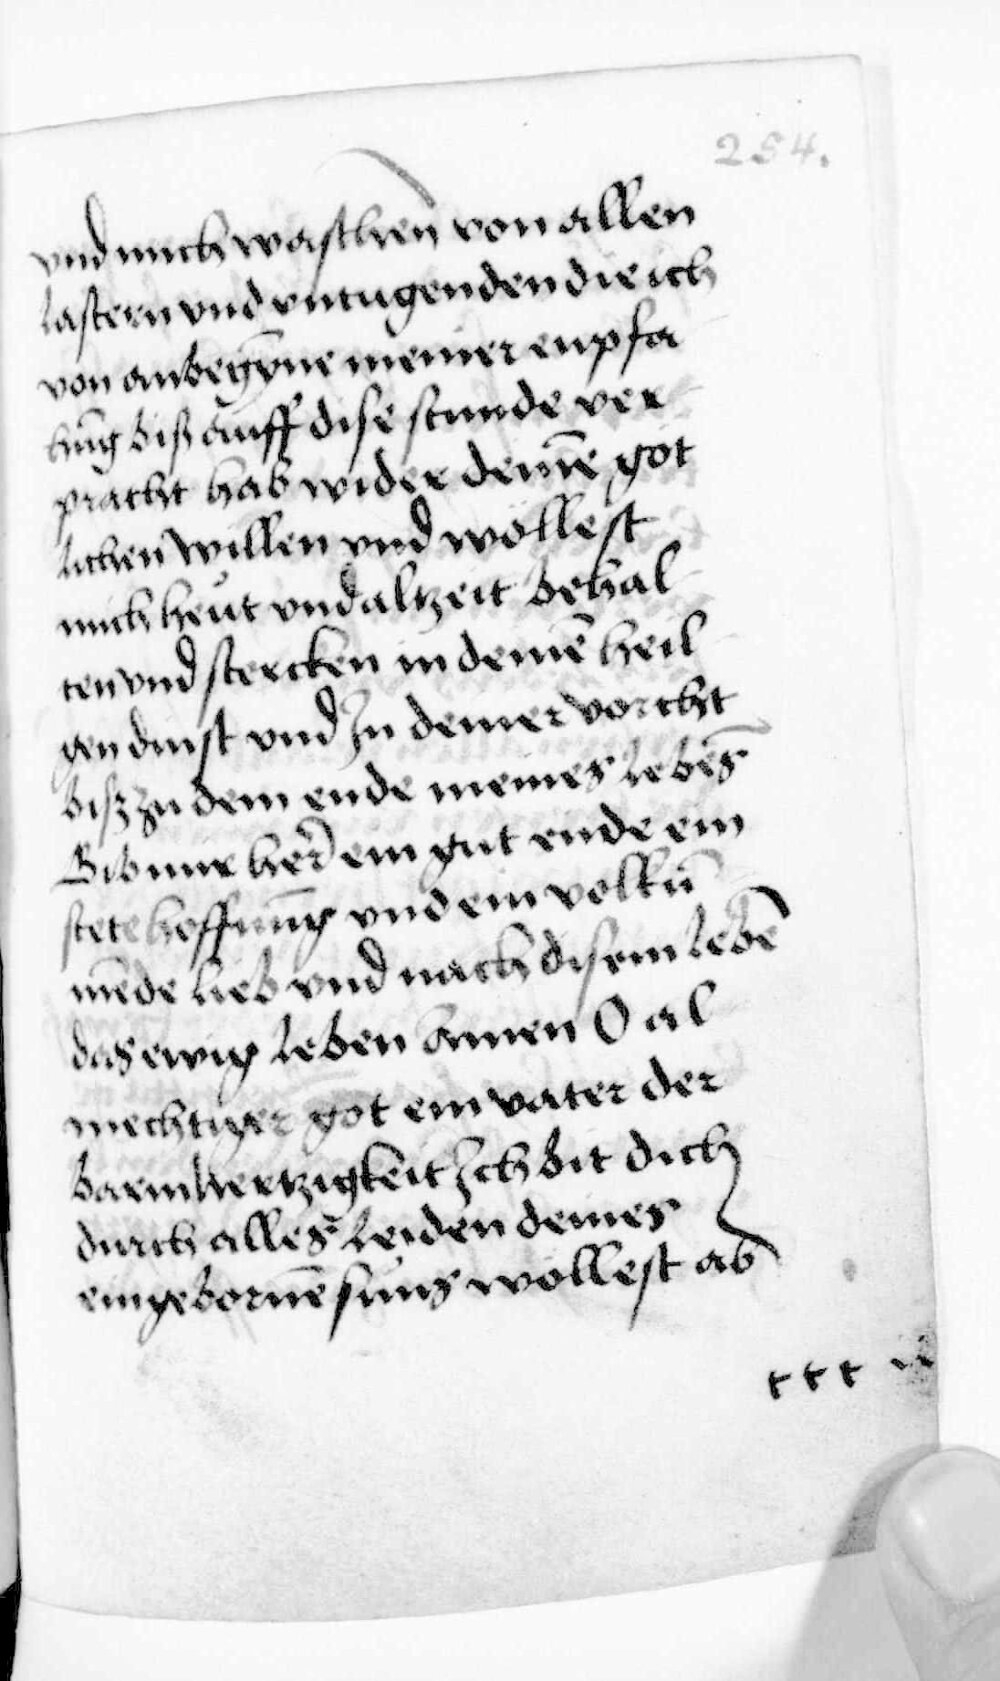 254.
vnd mich waschen von allen
lastern vnd vntugenden die ich
von anbegȳne meiner enpfa
hūg biß auff dise stunde ver
pracht hab wider deinē got
lichen willen vnd wöllest
mich heut vnd altzeit behal
ten vnd stercken in deinē heil
gen dinst vnd In deiner vorcht
biß zu dem ende meines lebēs
Gib mir her ein gut ende ein
stete hoffnūg vnd ein volkū
mēde lieb vnd nach disem lebē
das ewig leben Amen O al
mechtiger got ein vater der
barmhertzigkeit Ich bit dich
durch alles leiden deines
eingebornē suns wöllest ab
t t t